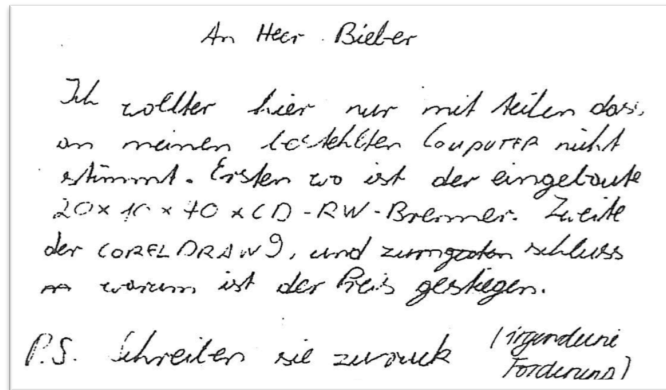 An Herr Bieber
Ich wollter hier nur mit teilen das,
an meinen bestehlten COMPUTER nicht
stimmt. Ersten wo ist der eingebaute
20x10x40xCD-RW-Brenner. Zweite
der CORELDRAW9, und zumguten schluss
warum ist der Preis gestiegen.
P.S. Schreiben sie zurouck (irgendeine
Forderung)